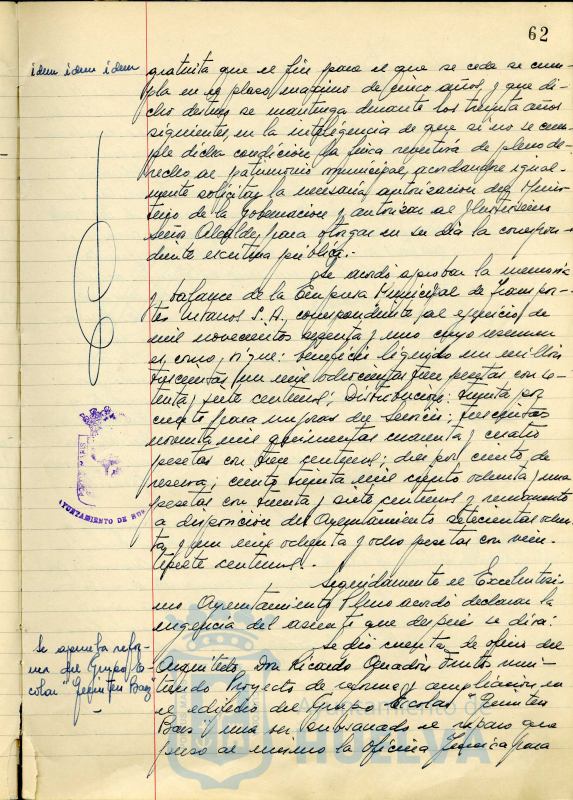 62
idem idem idem
gratuita que el fin para el que se cede se cum-
pla en el plazo máximo de cinco años y que di-
cho destino se mantenga durante los treinta años
siguientes, en la inteligencia de que si no se cum-
ple dicha condición la finca revertirá de pleno de-
recho al patrimonio municipal, acordándose igual-
mente solicitar la necesaria autorización del Minis-
terio de la Gobernación y autorizar al Ilustrísimo
Señor Alcalde para otorgar en su día la correspon-
diente escritura pública.-
Se acordó aprobar la memoria
y balance de la Empresa Municipal de Transpor-
tes Urbanos S.A. correspondiente al ejercicio de
mil novecientos sesenta y uno cuyo resumen
es como sigue: beneficio líquido un millón
trescientas un mil ochocientas trece pesetas con
siete centimos; Distribución: treinta por
ciento para mejoras del Servicio; trescientas
noventa mil quinientas cuarenta y cuatro
pesetas con trece centimos; diez por ciento de
reserva; ciento treinta mil ciento ochenta y una
pesetas con treinta y siete centimos y remanente
a disposición del Ayuntamiento setecientas ochen-
ta y un mil ochenta y ocho pesetas con vein-
tisiete centimos.-
AYUNTAMIENTO DE
Seguidamente el Excelentísi-
mo Ayuntamiento Pleno acordó declarar la
urgencia del asunto que después se dirá:
Se aprueba refor-
ma del Grupo Es-
colar "Quintero Baez"
Se dió cuenta de oficio del
Arquitecto, Don Ricardo Anadón Frutos remi-
tiendo Proyecto de reforma y ampliación en
el edificio del Grupo Escolar "Quintero
Baez" y una vez subsanado el reparo que
puso al mismo la Oficina Técnica para
Ayuntamiento de
HUELVA